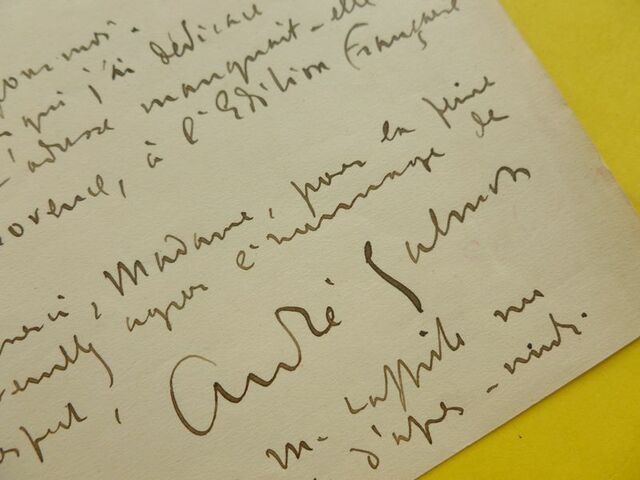 pour moi.
qui j'ai dédicacé
l'adresse manquait-elle
Provence, à l'Edition Française
merci, Madame, pour la peine
agréer l'hommage de
respect,
André Salmon
M.
d'après-midi.